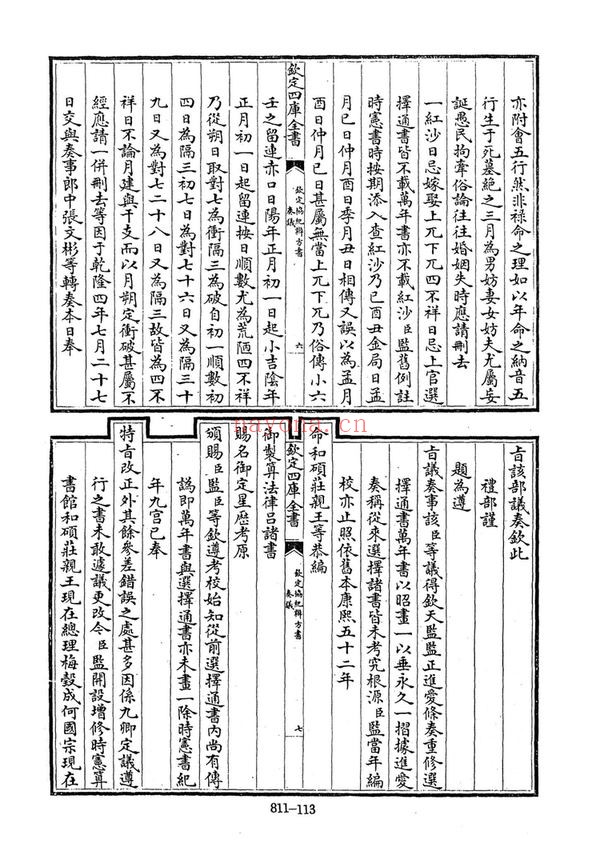 亦附會五行然非祿命之理如以年命之納音五
行生于死墓絶之三月為男妨妻女妨夫尤屬妄
誕愚民拘葦俗論往往婚姻失時應請刪去
一紅沙日忌嫁娶上兀下兀四不祥日忌上官選
擇通書皆不載萬年書亦不載紅沙臣監舊例註
時憲書時按期添入查紅沙乃巳酉丑金局日孟
月巳日仲月酉日季月丑日相傳又誤以為孟月
酉日仲月巳日甚屬無當上兀下兀乃俗傳小六
欽定四庫全書
欽定協紀辨方書
奏議
六
壬之留連赤口日陽年正月初一日起小吉陰年
正月初一日起留連按日順數尤為荒陋四不祥
乃從朔日取對七為衝隔三為破自初一順數初
四日為隔三初七日為對七十六日又為隔三十
九日又為對七二十八日又為隔三故皆為四不
祥日不論月建與干支而以月朔定衝破甚屬不
經應請一併刪去等因于乾隆四年七月二十七
日交與奏事郎中張文彬等轉奏本日奉
旨該部議奏欽此
禮部謹
題為遵
旨議奏事該臣等議得欽天監監正進愛條奏重修選
擇通書萬年書以昭畫一以垂永久一摺據進愛
奏稱從來選擇諸書皆未考究根源臣監當年編
校亦止照依舊本康熙五十二年
命和碩莊親王等恭編
欽定四庫全書
欽定協紀辨方書
奏議
七
御製算法律呂諸書
賜名御定星歷考原
頒賜臣監臣等欽遵考校始知從前選擇通書內尚有傳
譌即萬年書與選擇通書亦未畫一除時憲書紀
年九宮已奉
特旨改正外其餘參差錯誤之處甚多因係九卿定議遵
行之書未敢遽議更改今臣監開設增修時憲算
書館和碩莊親王現在總理梅瑴成何國宗現在
811-113
nayona.cn